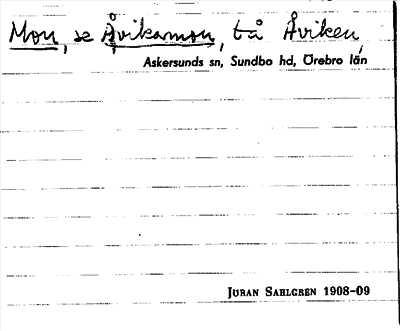 Mon, se Åvikamon, bå Åviken,
Askersunds sn, Sundbo hd, Örebro län
Juran Sahlgren 1908-09